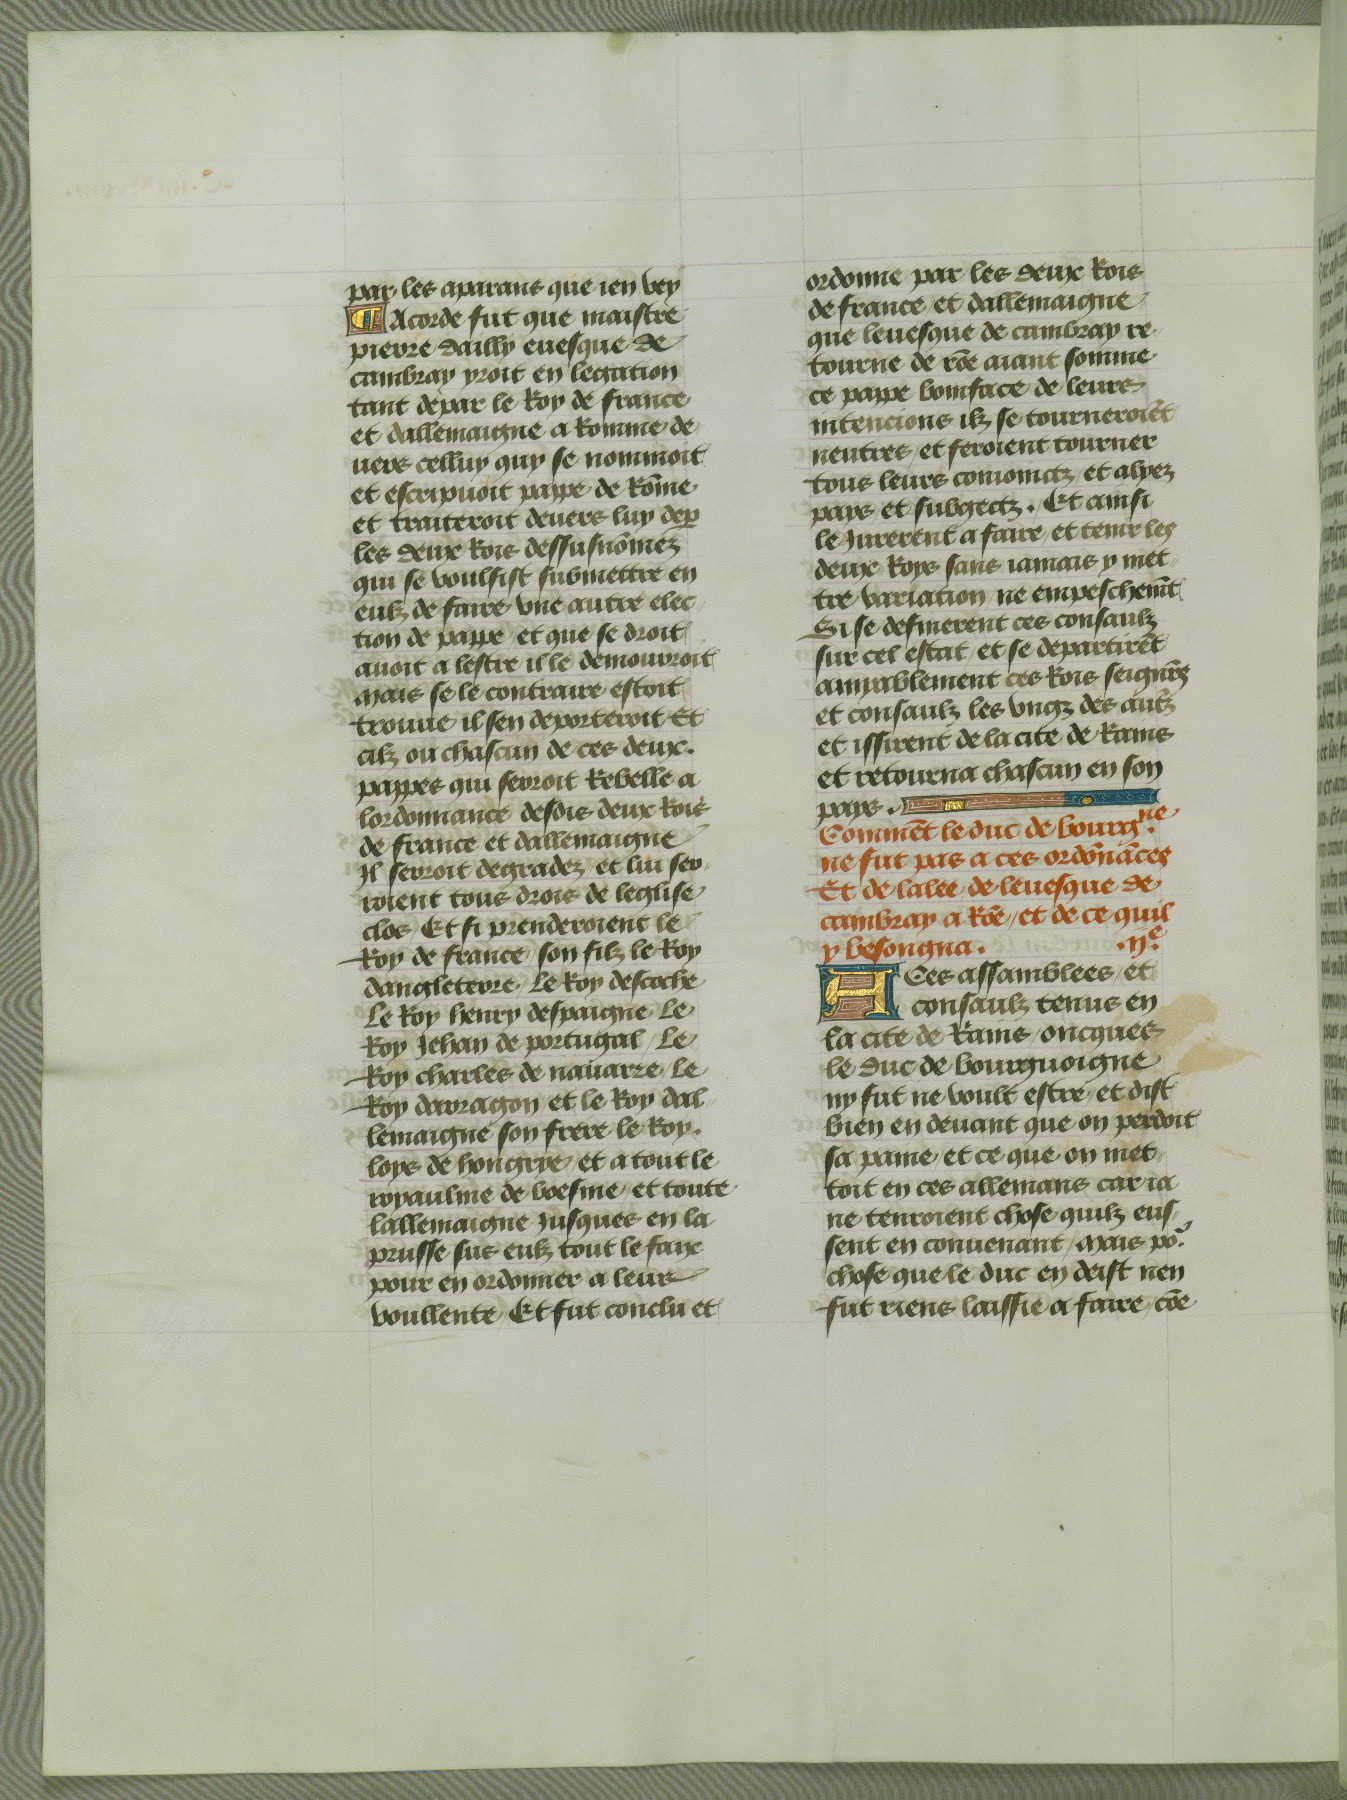 par les aparans que ien vey
¶ Acorde fut que maistre
pierre dailly euesque de
cambray yroit en legation
tant depar le Roy de france
et dallemaigne a Romme de
uers celluy quy se nommoit
et escripuoit pape de Rōme
et traiteroit deuers luy dep̄
les deux Rois dessusnōmez
qui se voulsist submettre en
eulz de faire vne autre elec
tion de pape et que se droit
auoit a lestre il le demourroit
Mais se le contraire estoit
trouue il sen deporteroit Et
cilz ou chascun de ces deux.
papes qui seroit Rebelle a
lordonnance desdis deux Rois
de france et dallemaigne
Il seroit degradez et lui ser
roient tous drois de leglise
clos Et si prenderoient le
Roy de france son filz le Roy
dangleterre Le Roy descoche
Le Roy henry despaigne Le
Roy Jehan de portugal Le
Roy charles de nauarre Le
Roy darragon et le Roy dal
lemaigne son frere le Roy.
loys de hongrye et a tout le
royaulme de boesme et toute
lallemaigne Jusques en la
prusse sus eulz tout le faix
pour en ordonner a leur
voullente Et fut conclu et
ordonne par les deux Rois
de france et dallemaigne
que leuesque de cambray re
tourne de rōe aiant somme
ce pape boniface de leurs
intencions ilz se tourneroiēt
neutres et feroient tourner
tous leurs conioinctz et alyez
pays et subgectz. Et ainsi
le Jurerent a faire et tenir les
deux Roys sans iamais y met
tre variation ne empeschem̄t
Si se definerent ces consaulz
sur cel estat et se departirēt
amyablement ces Rois seign̄rs
et consaulz les vngz des aut̄s
et issirent de la cite de Rains
et retourna chascun en son
pays.
Commēt le duc de bourgne.
ne fut pas a ces ordōnāces
Et de lalee de leuesque de
cambray a Rōe et de ce quil
y besongna. .ije.
A Ces assamblees et
consaulz tenus en
la cite de Rains oncques
le duc de bourguoigne
ny fut ne voult estre et dist
bien en deuant que on perdoit
sa paine et ce que on met
toit en ces allemans car ia
ne tenroient chose quilz eus
sent en conuenant Mais po͛
chose que le duc en deist nen
fut riens laissie a faire cōe